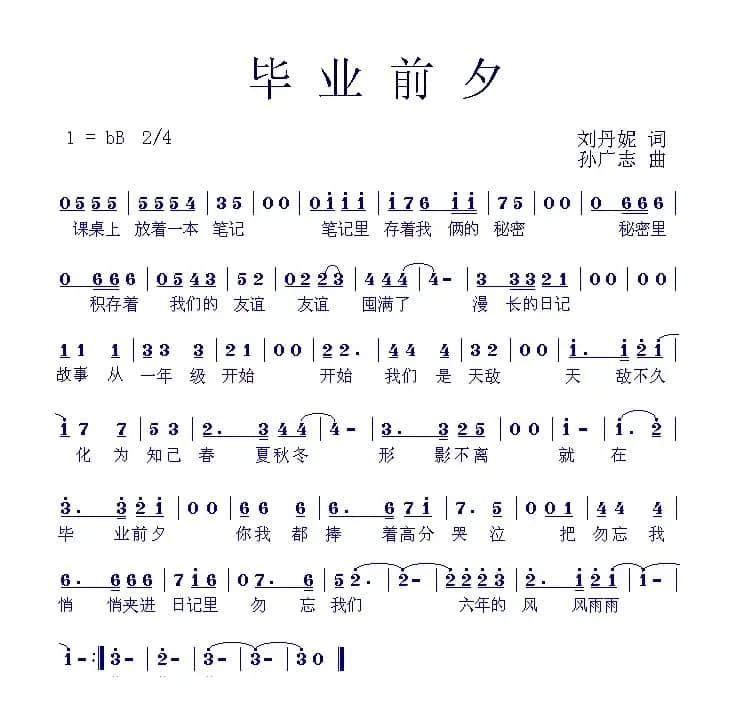 毕业前夕
1 = bB 2/4
刘丹妮 词
孙广志 曲
0555 | 5554 | 35 | 00 | 0iii | i76 ii | 75 | 00 | 0 666 |
课桌上 放着一本 笔记 笔记里 存着我 俩的 秘密 秘密里
0 666 | 0543 | 52 | 0223 | 444 | 4- | 3 3321 | 00 | 00 |
积存着 我们的 友谊 友谊 囤满了 漫 长的日记
11 1 | 33 3 | 21 | 00 | 22. | 44 4 | 32 | 00 | i. i2i |
故事 从 一年 级 开始 开始 我们 是 天敌 天 敌不久
i7 7 | 53 | 2. 344 | 4- | 3. 325 | 00 | i- | i. 2 |
化 为 知己 春 夏秋冬 形 影不离 就 在
3. 32i | 00 | 66 6 | 6. 67i | 7. 5 | 001 | 44 4 |
毕 业前夕 你我 都 捧 着高分 哭 泣 把 勿忘 我
6. 666 | 7i6 | 07. 6 | 52. | 2- | 2223 | 2. i2i | i- |
悄 悄夹进 日记里 勿 忘 我们 六年的 风 风雨雨
i- :‖ 3- | 2- | 3- | 3- | 30 ‖